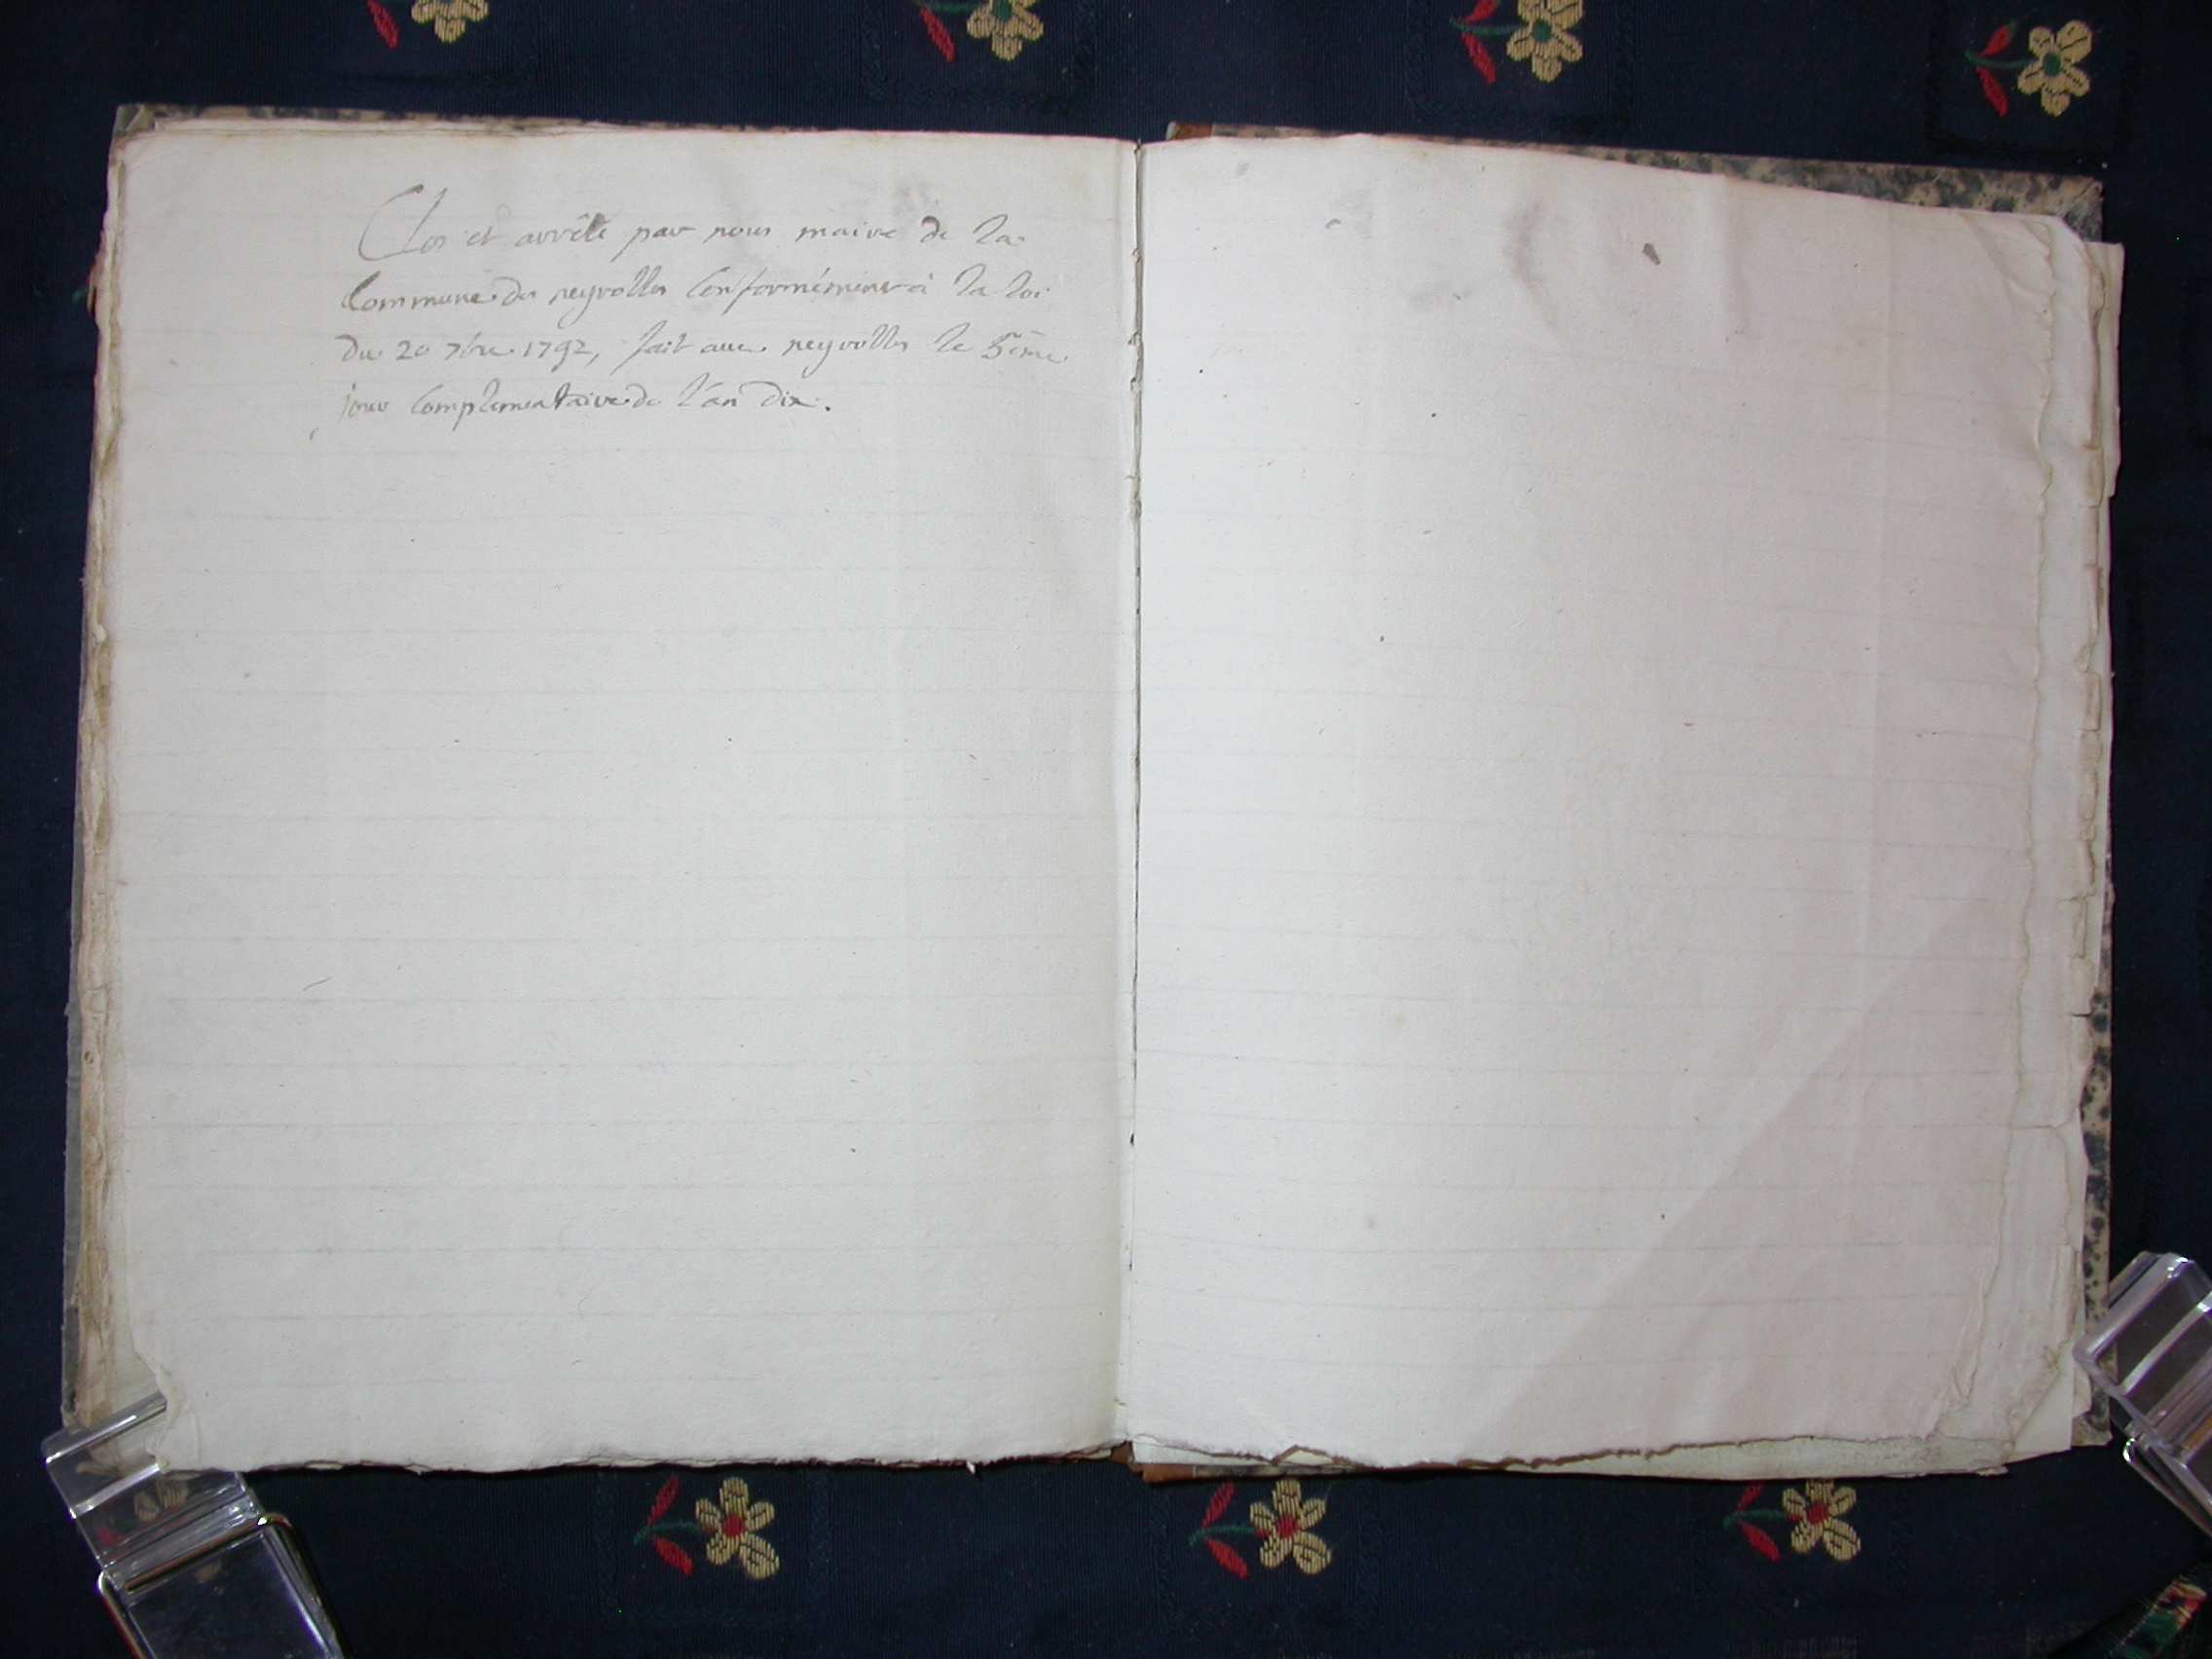 Clos et arrêté par nous maire de la
Commune des peyrolles Conformément à la loi
du 20 7bre 1792, fait aux peyrolles le 5ème
jour Complementaire de l'an dix.